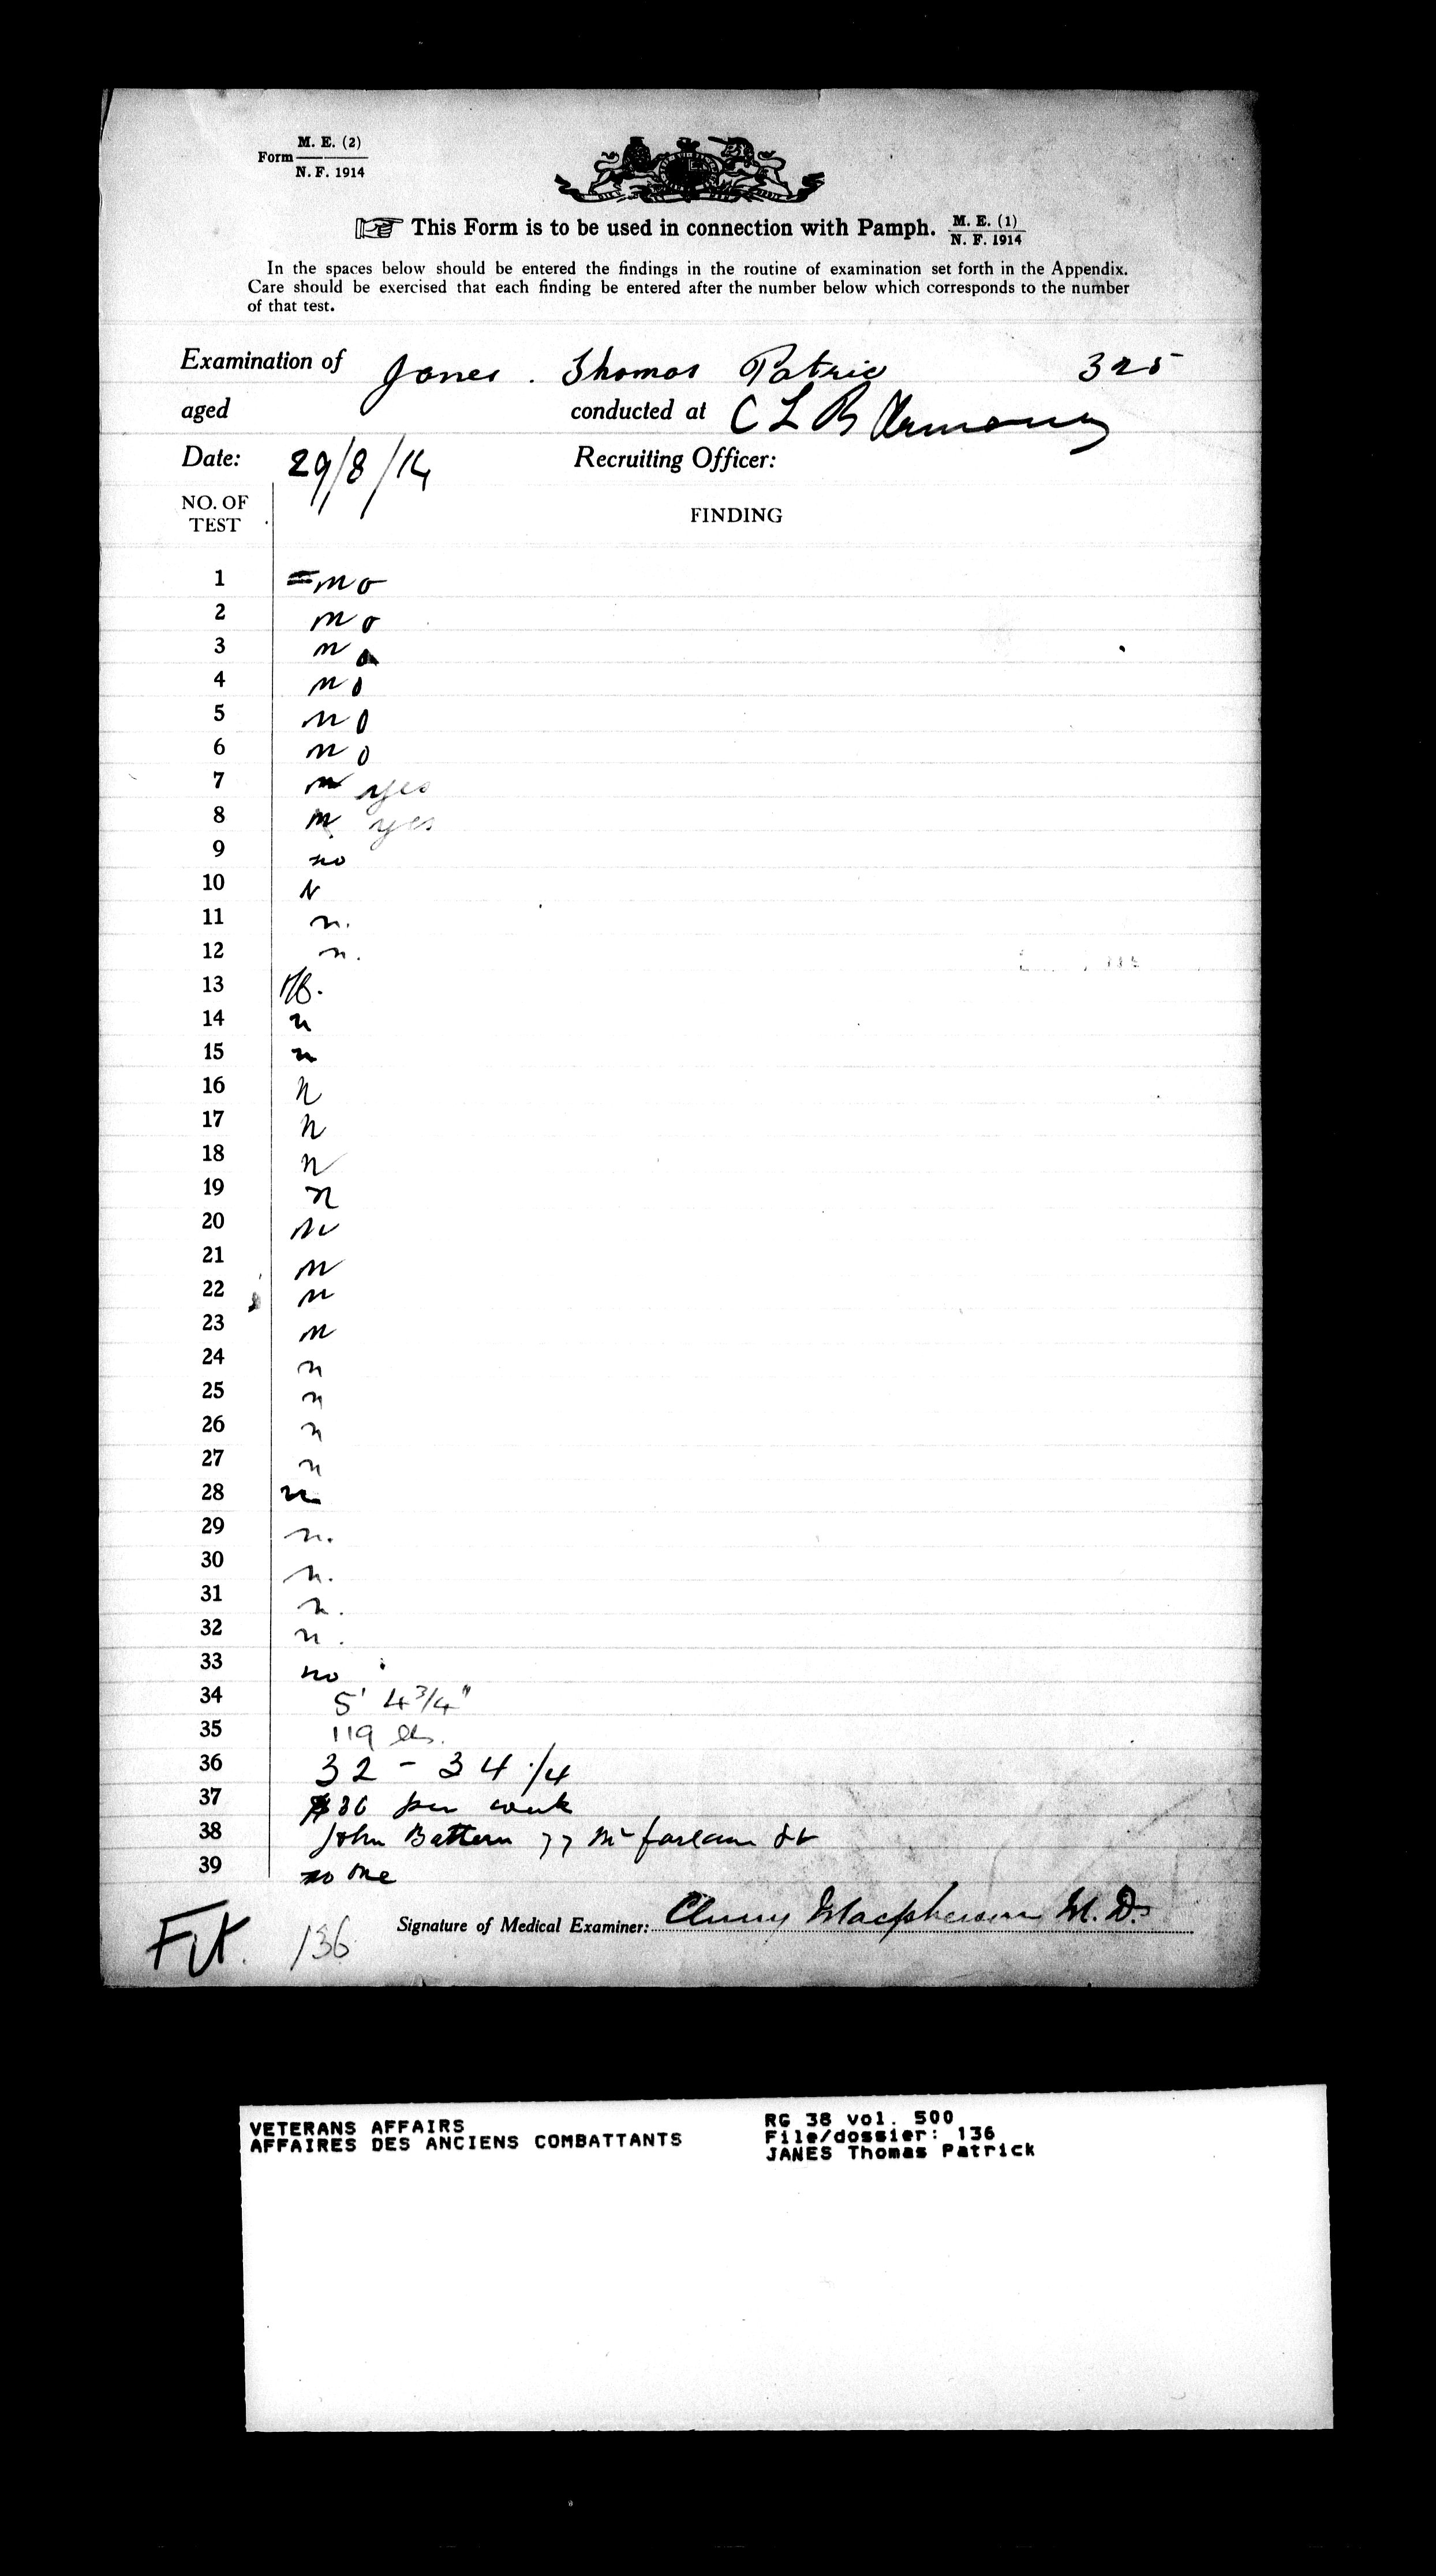 Form M. E. (2) / N. F. 1914
This Form is to be used in connection with Pamph. M. E. (1) / N. F. 1914
In the spaces below should be entered the findings in the routine of examination set forth in the Appendix.
Care should be exercised that each finding be entered after the number below which corresponds to the number
of that test.
Examination of Janes. Thomas Patric 325
aged conducted at C L B Armoury
Date: 29/8/14 Recruiting Officer:
NO. OF TEST FINDING
1 no
2 no
3 no
4 no
5 no
6 no
7 n yes
8 n yes
9 no
10 N
11 n.
12 n.
13
14 n
15 n
16 n
17 n
18 n
19 n
20 n
21 n
22 n
23 n
24 n
25 n
26 n
27 n
28 n
29 n.
30 n.
31 n.
32 n.
33 no
34 5' 4 3/4"
35 119 lbs.
36 32 - 34 1/4
37 $30 per week
38 John Battern 77 McFarlane St
39 none
Fit. 136 Signature of Medical Examiner: Cluny Macpherson M.D.
VETERANS AFFAIRS RG 38 vol. 500
AFFAIRES DES ANCIENS COMBATTANTS File/dossier: 136
JANES Thomas Patrick